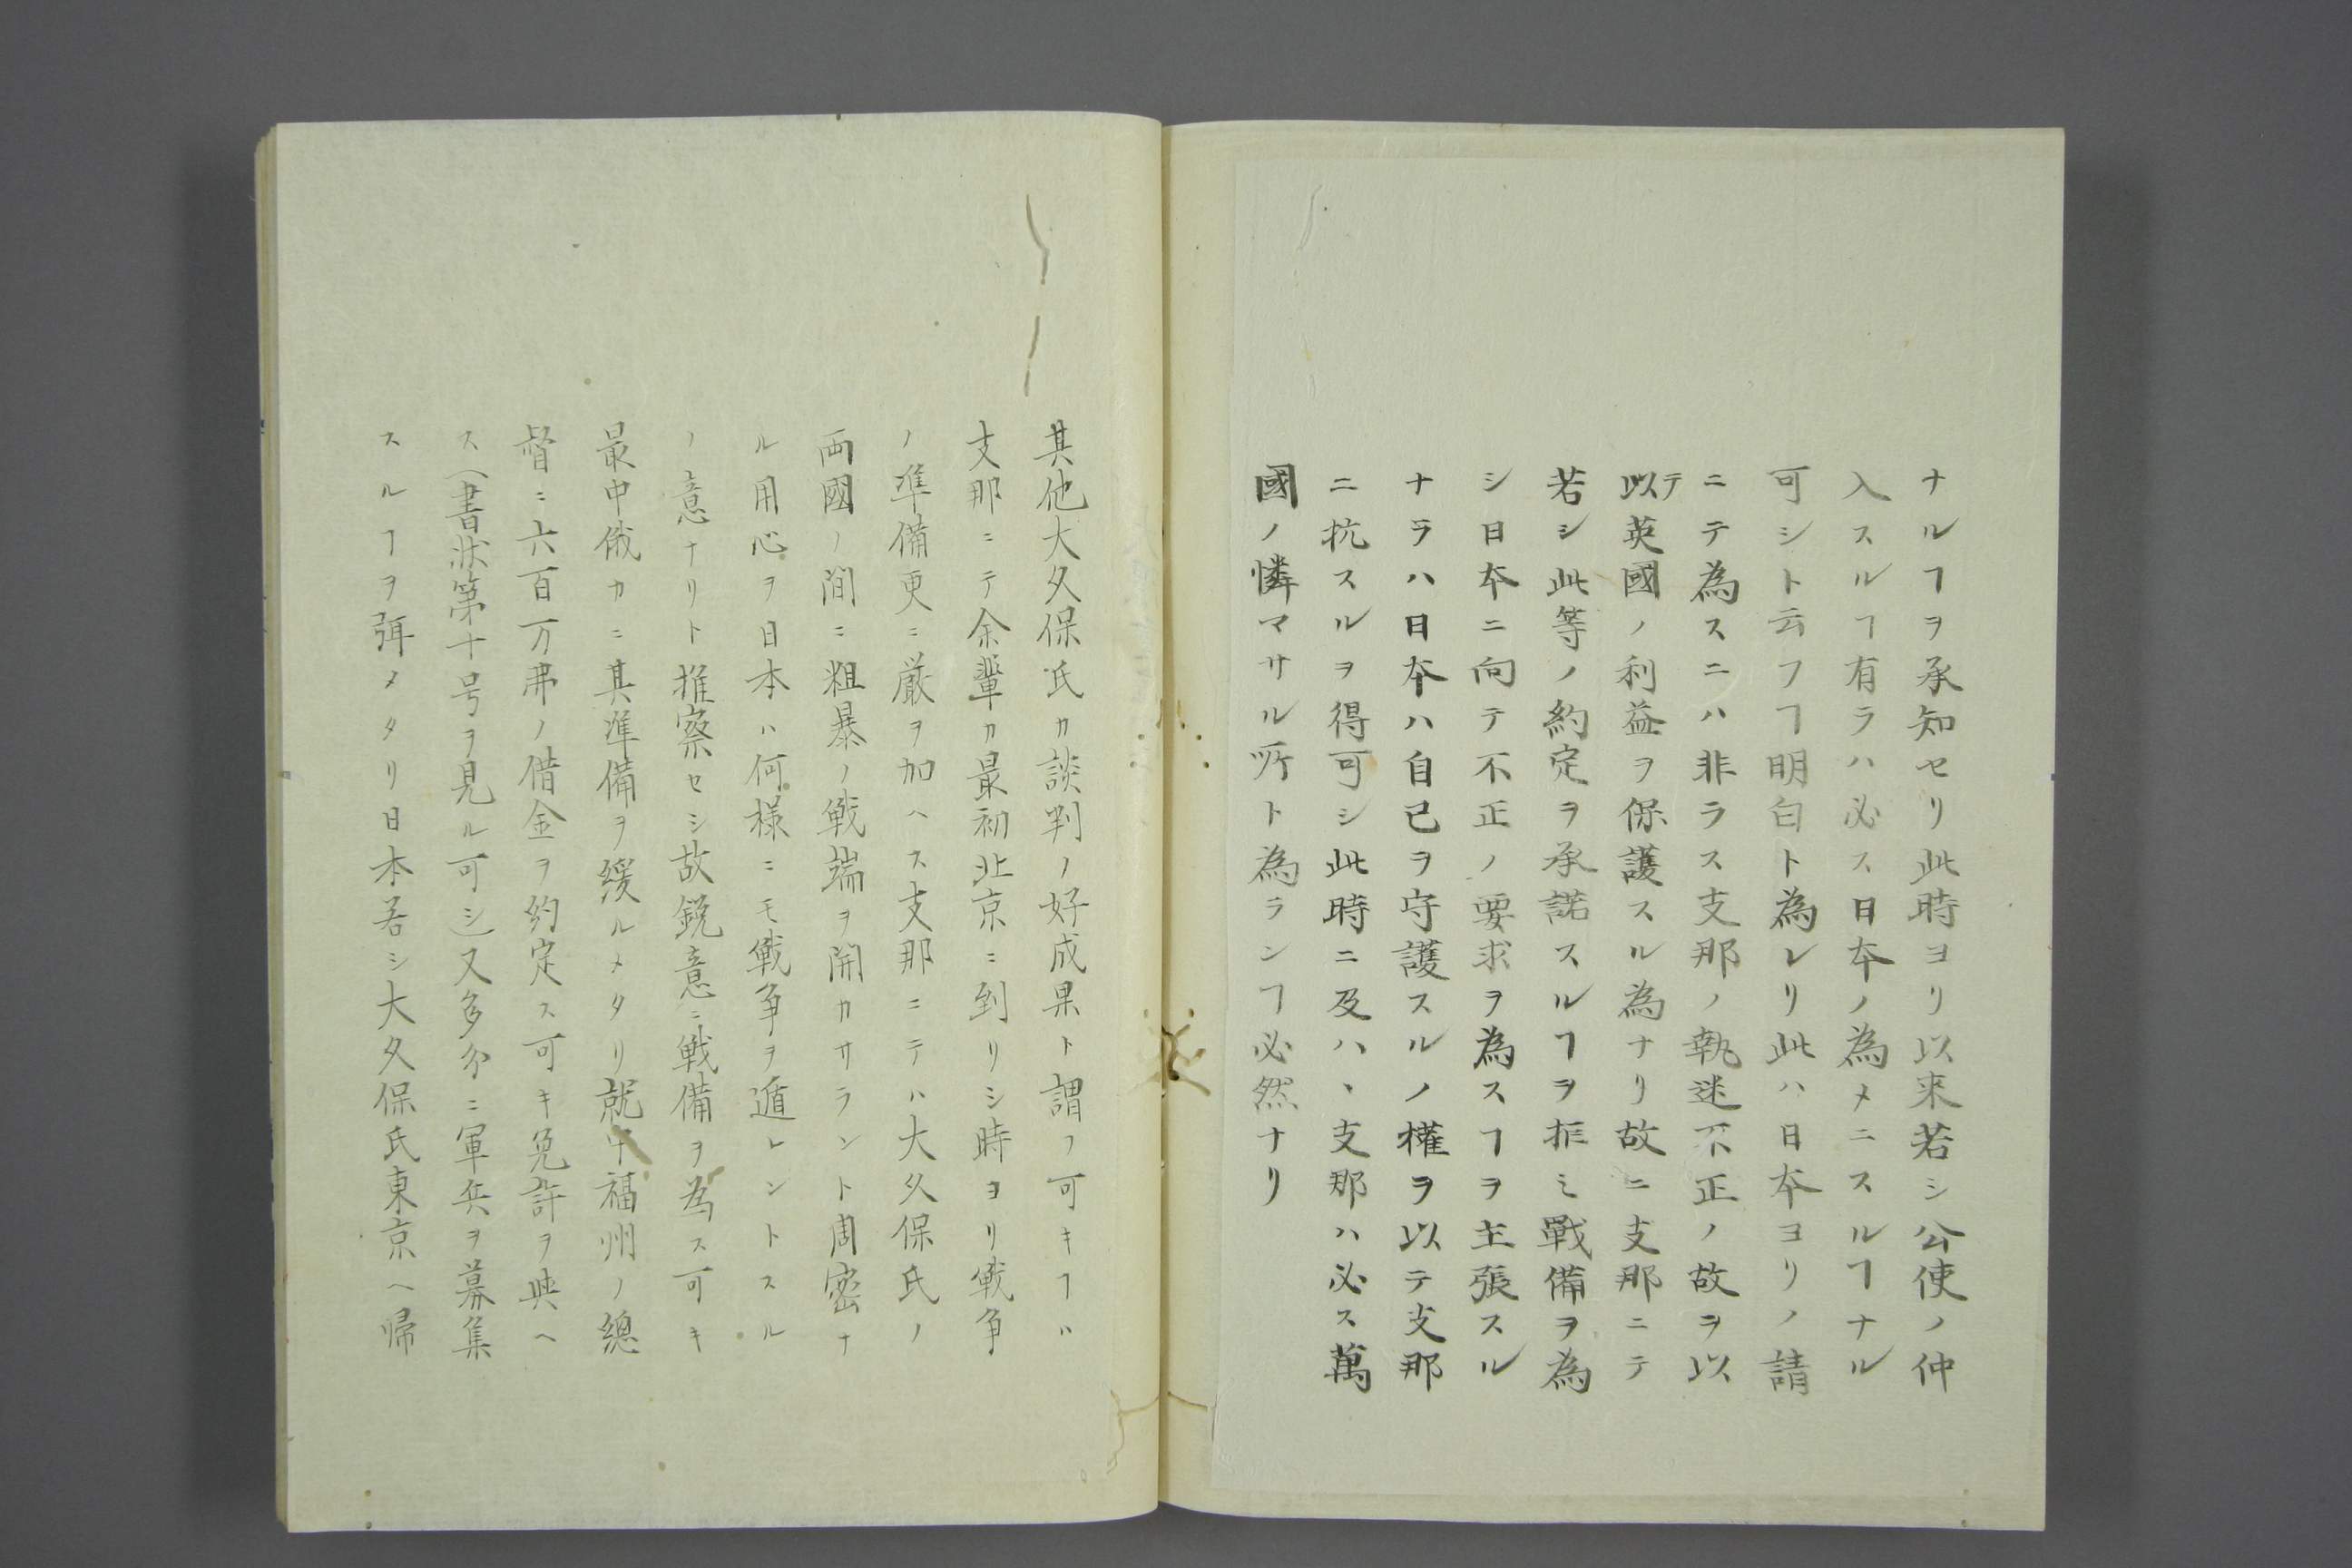 ナルヿヲ承知セリ此時ヨリ以来若シ公使ノ仲
入スルヿ有ラハ必ス日本ノ為メニスルヿナル
可シト云フヿ明白ト為レリ此ハ日本ヨリノ請
ニテ為スニハ非ラス支那ノ執迷不正ノ故ヲ以
テ以英國ノ利益ヲ保護スル為ナリ故ニ支那ニテ
若シ此等ノ約定ヲ承諾スルヿヲ拒ミ戰備ヲ為
シ日本ニ向テ不正ノ要求ヲ為スヿヲ主張スル
ナラハ日本ハ自己ヲ守護スルノ權ヲ以テ支那
ニ抗スルヲ得可シ此時ニ及ハヽ支那ハ必ス萬
國ノ憐マサル所ト為ランヿ必然ナリ
其他大久保氏カ談判ノ好成果ト謂フ可キヿハ
支那ニテ余輩カ最初北京ニ到リシ時ヨリ戦争
ノ準備更ニ厳ヲ加ヘス支那ニテハ大久保氏ノ
両國ノ間ニ粗暴ノ戦端ヲ開カサラント周密ナ
ル用心ヲ日本ハ何様ニモ戦争ヲ遁レントスル
ノ意ナリト推察セシ故鋭意ニ戦備ヲ為ス可キ
最中俄カニ其準備ヲ緩ルメタリ就中福州ノ總
督ニ六百万弗ノ借金ヲ約定ス可キ免許ヲ與ヘ
ス(書状第十号ヲ見ル可シ)又多分ニ軍兵ヲ募集
スルヿヲ弭メタリ日本若シ大久保氏東京ヘ帰